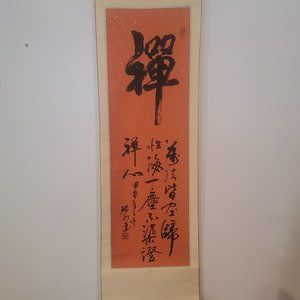 禪
萬法皆空歸
性海一塵不染證
禪心